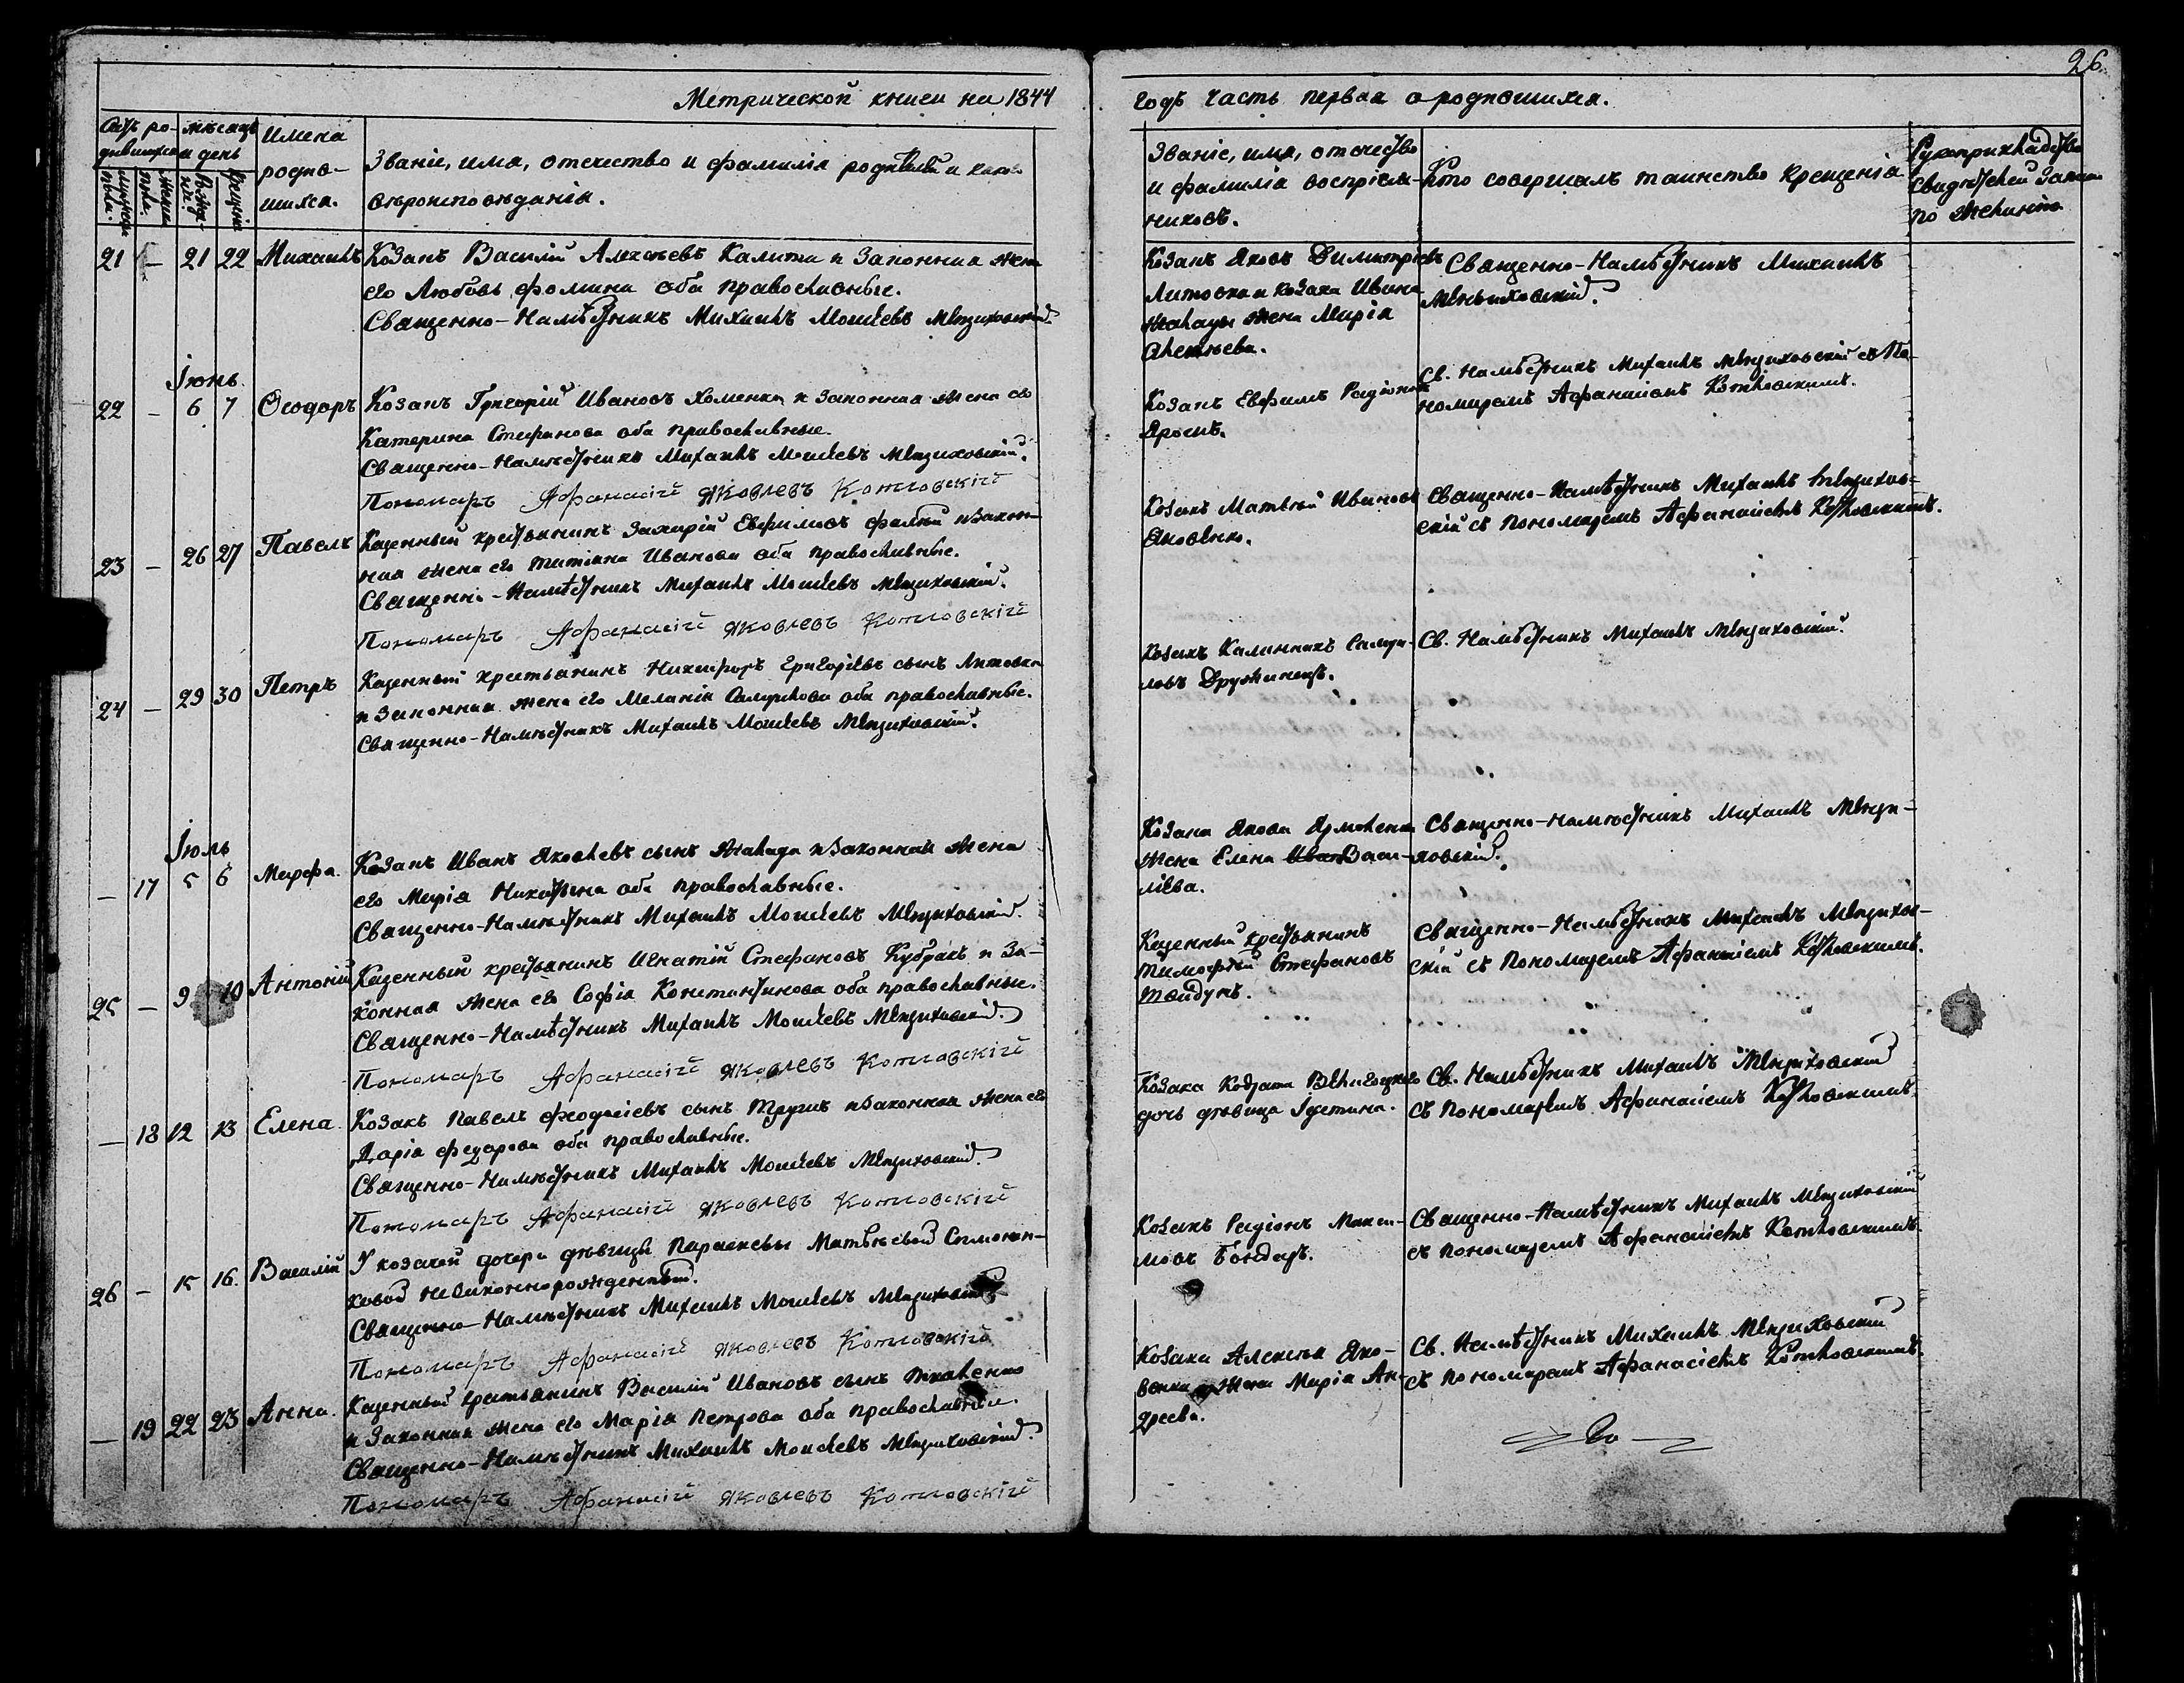 26
Метрической книги на 1844
годъ часть первая о родившихся.
Счетъ ро-
дившихся
мѣсяцъ
и день
Имена
родив-
шихся.
мужеска
пола.
женска
пола.
Рожде-
нія.
Крещенія
Званіе, имя, отечество и фамилія родителей и какого
вѣроисповѣданія.
Званіе, имя, отечество
и фамилія воспріем-
никовъ.
Кто совершалъ таинство крещенія
Рукоприкладство
Свидѣтелей записи
по желанію
21 — 21 22 Михаилъ Козакъ Василій Алексѣевъ Калита и Законная жена
его Любовь Фомина оба православные.
Священно-Намѣстникъ Михаилъ Моисеевъ
Козакъ Яковъ Димитріевъ
Литовка и козака Ивана
жена Марія
Алексѣева.
Священно-Намѣстникъ Михаилъ
Іюнь.
22 — 6 7 Ѳеодоръ Козакъ Григорій Ивановъ Хоменко и Законная жена его
Катерина Стефанова оба православные.
Священно-Намѣстникъ Михаилъ Моисеевъ
Пономарь Афанасій Яковлевъ Котловскій
Козакъ Евфимъ Радіоновъ
Св. Намѣстникъ Михаилъ съ По-
номаремъ Афанасіемъ Котловскимъ.
23 — 26 27 Павелъ Казенный крестьянинъ Захарій Евфимовъ и Закон-
ная жена его Татіана Иванова оба православные.
Священно-Намѣстникъ Михаилъ Моисеевъ
Пономарь Афанасій Яковлевъ Котловскій
Козакъ Матвѣй Ивановъ
Яковенко.
Священно-Намѣстникъ Михаилъ
скій съ Пономаремъ Афанасіемъ Котловскимъ.
24 — 29 30 Петръ Казенный крестьянинъ Никифоръ Григоріевъ сынъ Литовка
и Законная жена его Меланія Самуилова оба православные.
Священно-Намѣстникъ Михаилъ Моисеевъ
Козакъ Калинникъ Самуи-
ловъ Дружинецъ.
Св. Намѣстникъ Михаилъ
Іюль
— 17 5 6 Марфа. Козакъ Иванъ Яковлевъ сынъ и Законная жена
его Марія Никитина оба православные.
Священно-Намѣстникъ Михаилъ Моисеевъ
Козака Якова Ярмоленка
жена Елена Васи-
ліева.
Священно-Намѣстникъ Михаилъ
ховскій.
25 — 9 10 Антоній Казенный крестьянинъ Игнатій Стефановъ Кубракъ и За-
конная жена его Софія Константинова оба православные.
Священно-Намѣстникъ Михаилъ Моисеевъ
Пономарь Афанасій Яковлевъ Котловскій
Казенный крестьянинъ
Тимофей Стефановъ
Священно-Намѣстникъ Михаилъ
скій съ Пономаремъ Афанасіемъ Котловскимъ.
— 18 12 13 Елена. Козакъ Павелъ Феодосіевъ сынъ и Законная жена его
Дарія Федорова оба православные.
Священно-Намѣстникъ Михаилъ Моисеевъ
Пономарь Афанасій Яковлевъ Котловскій
Козака
дочь дѣвица Іустина.
Св. Намѣстникъ Михаилъ
съ Пономаремъ Афанасіемъ Котловскимъ.
26 — 15 16 Василій У козачей дочери дѣвицы Параскевы Матвѣевой
незаконнорожденный.
Священно-Намѣстникъ Михаилъ Моисеевъ
Пономарь Афанасій Яковлевъ Котловскій
Козакъ Радіонъ Макси-
мовъ Бондарь.
Священно-Намѣстникъ Михаилъ
съ Пономаремъ Афанасіемъ Котловскимъ.
— 19 22 23 Анна. Казенный крестьянинъ Василій Ивановъ сынъ Ткаченко
и Законная жена его Марія Петрова оба православные.
Священно-Намѣстникъ Михаилъ Моисеевъ
Пономарь Афанасій Яковлевъ Котловскій
Козака Алексѣя Яко-
венка жена Марія Ан-
дреева.
Св. Намѣстникъ Михаилъ
съ Пономаремъ Афанасіемъ Котловскимъ.